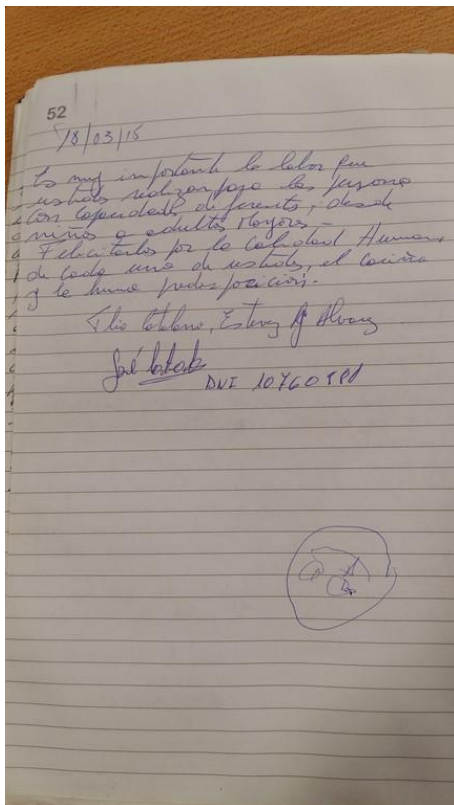 52
18/03/15
Es muy importante la labor que
ustedes realizan para las personas
con capacidades diferentes, desde
niños a adultos Mayores -
Felicitarlos por la calidad Humana,
de cada uno de ustedes, el cariño
y la buena predisposición.
Flia Catalano, Estevez Alvarez
José
DNI 10760